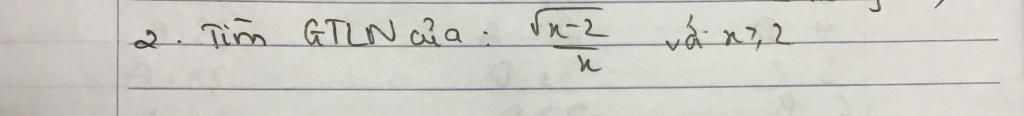 2. Tìm GTLN của: \frac{\sqrt{x-2}}{x} với x ≥ 2